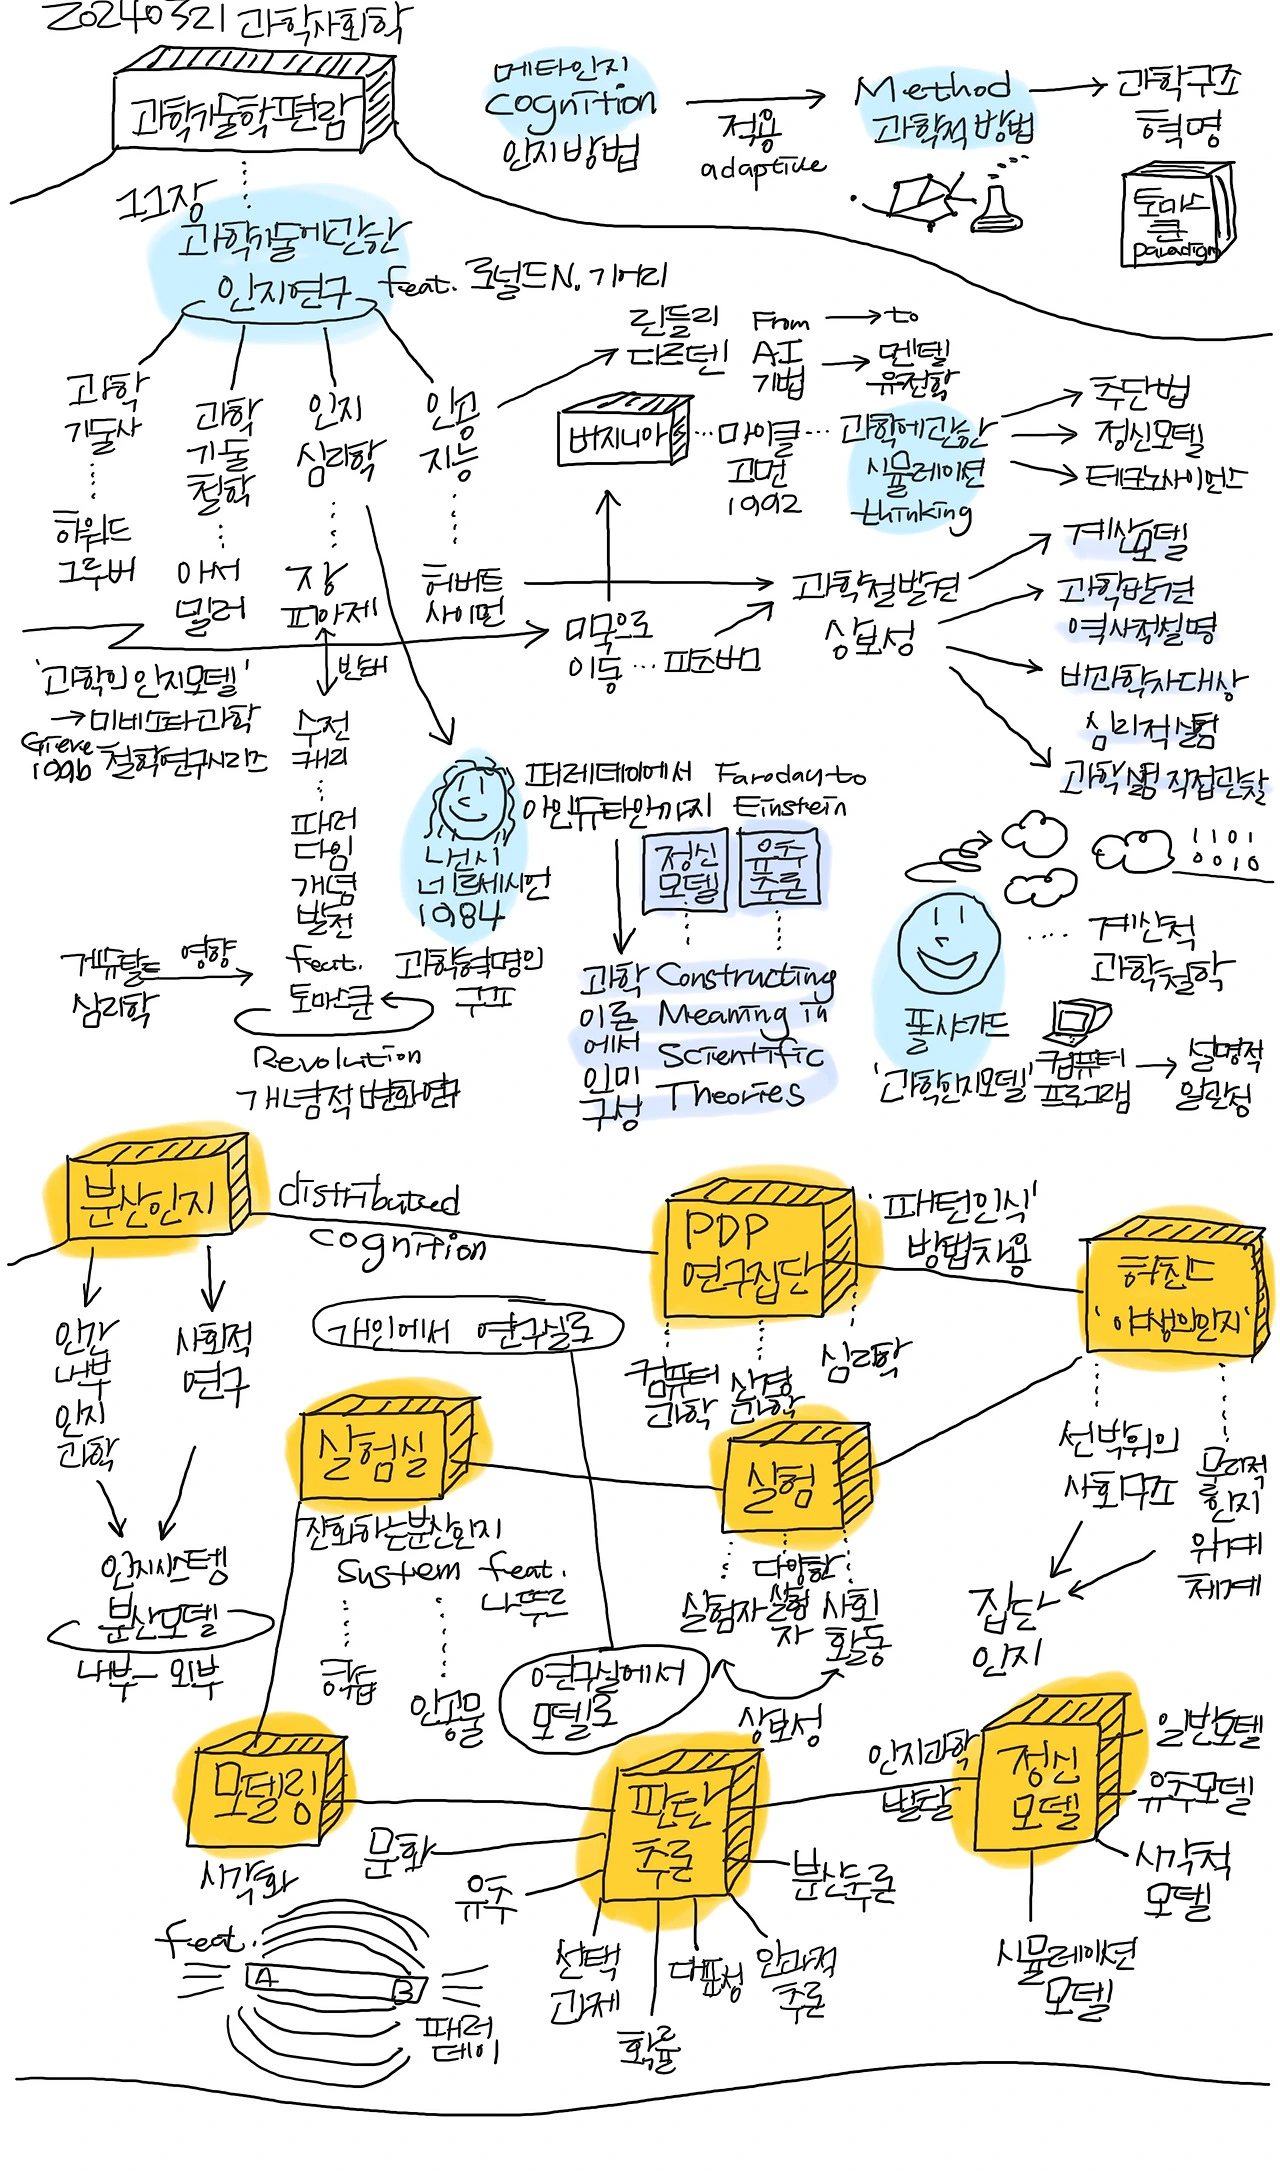 20240321 과학사회학
과학기술학편람
메타인지
Cognition
인지방법
적용
adaptive
Method
과학적 방법
과학구조
혁명
토마스
쿤
paradigm
11장
과학기술에관한
인지연구
feat. 로널드 N. 기어리
과학
기술사
하워드
그루버
과학
기술
철학
아서
밀러
인지
심리학
장
피아제
인공
지능
허버트
사이먼
린들리
다르덴
From
AI
기법
to
멘델
유전학
버지니아
마이클
고먼
1992
과학에관한
시뮬레이션
thinking
추단법
정신모델
테크노사이언스
미국으로
이동 … 피츠버그
과학철발견
상보성
계산모델
과학발견
역사적설명
비과학자대상
심리적실험
과학실험 직접관찰
'과학의 인지모델'
→ 미네소타과학
철학연구시리즈
Giere
1996
반대
수전
캐리
패러
다임
개념
발전
feat.
토마스쿤
게슈탈트
심리학
영향
Revolution
개념적 변화연구
낸시
너르세시언
1984
과학혁명의
구조
패러데이에서
아인슈타인까지
Faraday to
Einstein
정신
모델
유추
추론
과학
이론
에서
의미
구성
Constructing
Meaning in
Scientific
Theories
1101
0010
폴 샤가드
'과학인지모델'
계산적
과학철학
컴퓨터
프로그램
설명적
일관성
분산인지
distributed
cognition
PDP
연구집단
'패턴인식'
방법차용
허친스
'야생의인지'
인간
내부
인지
과학
사회적
연구
개인에서 연구실로
컴퓨터
과학
신경
과학
심리학
선박위의
사회구조
물리적
인지
위계
체계
실험실
실험
진화하는분산인지
system feat.
라뚜르
학습
인공물
실험자
다양한
실험
자
사회
활동
상보성
집단
인지
인지시스템
분산모델
내부 — 외부
연구실에서
모델로
모델링
시각화
판단
추론
인지과학
발달
정신
모델
일반모델
유추모델
시각적
모델
시뮬레이션
모델
문화
유추
선택
과제
확률
대표성
인과적
추론
분산추론
feat.
A
B
패러
데이